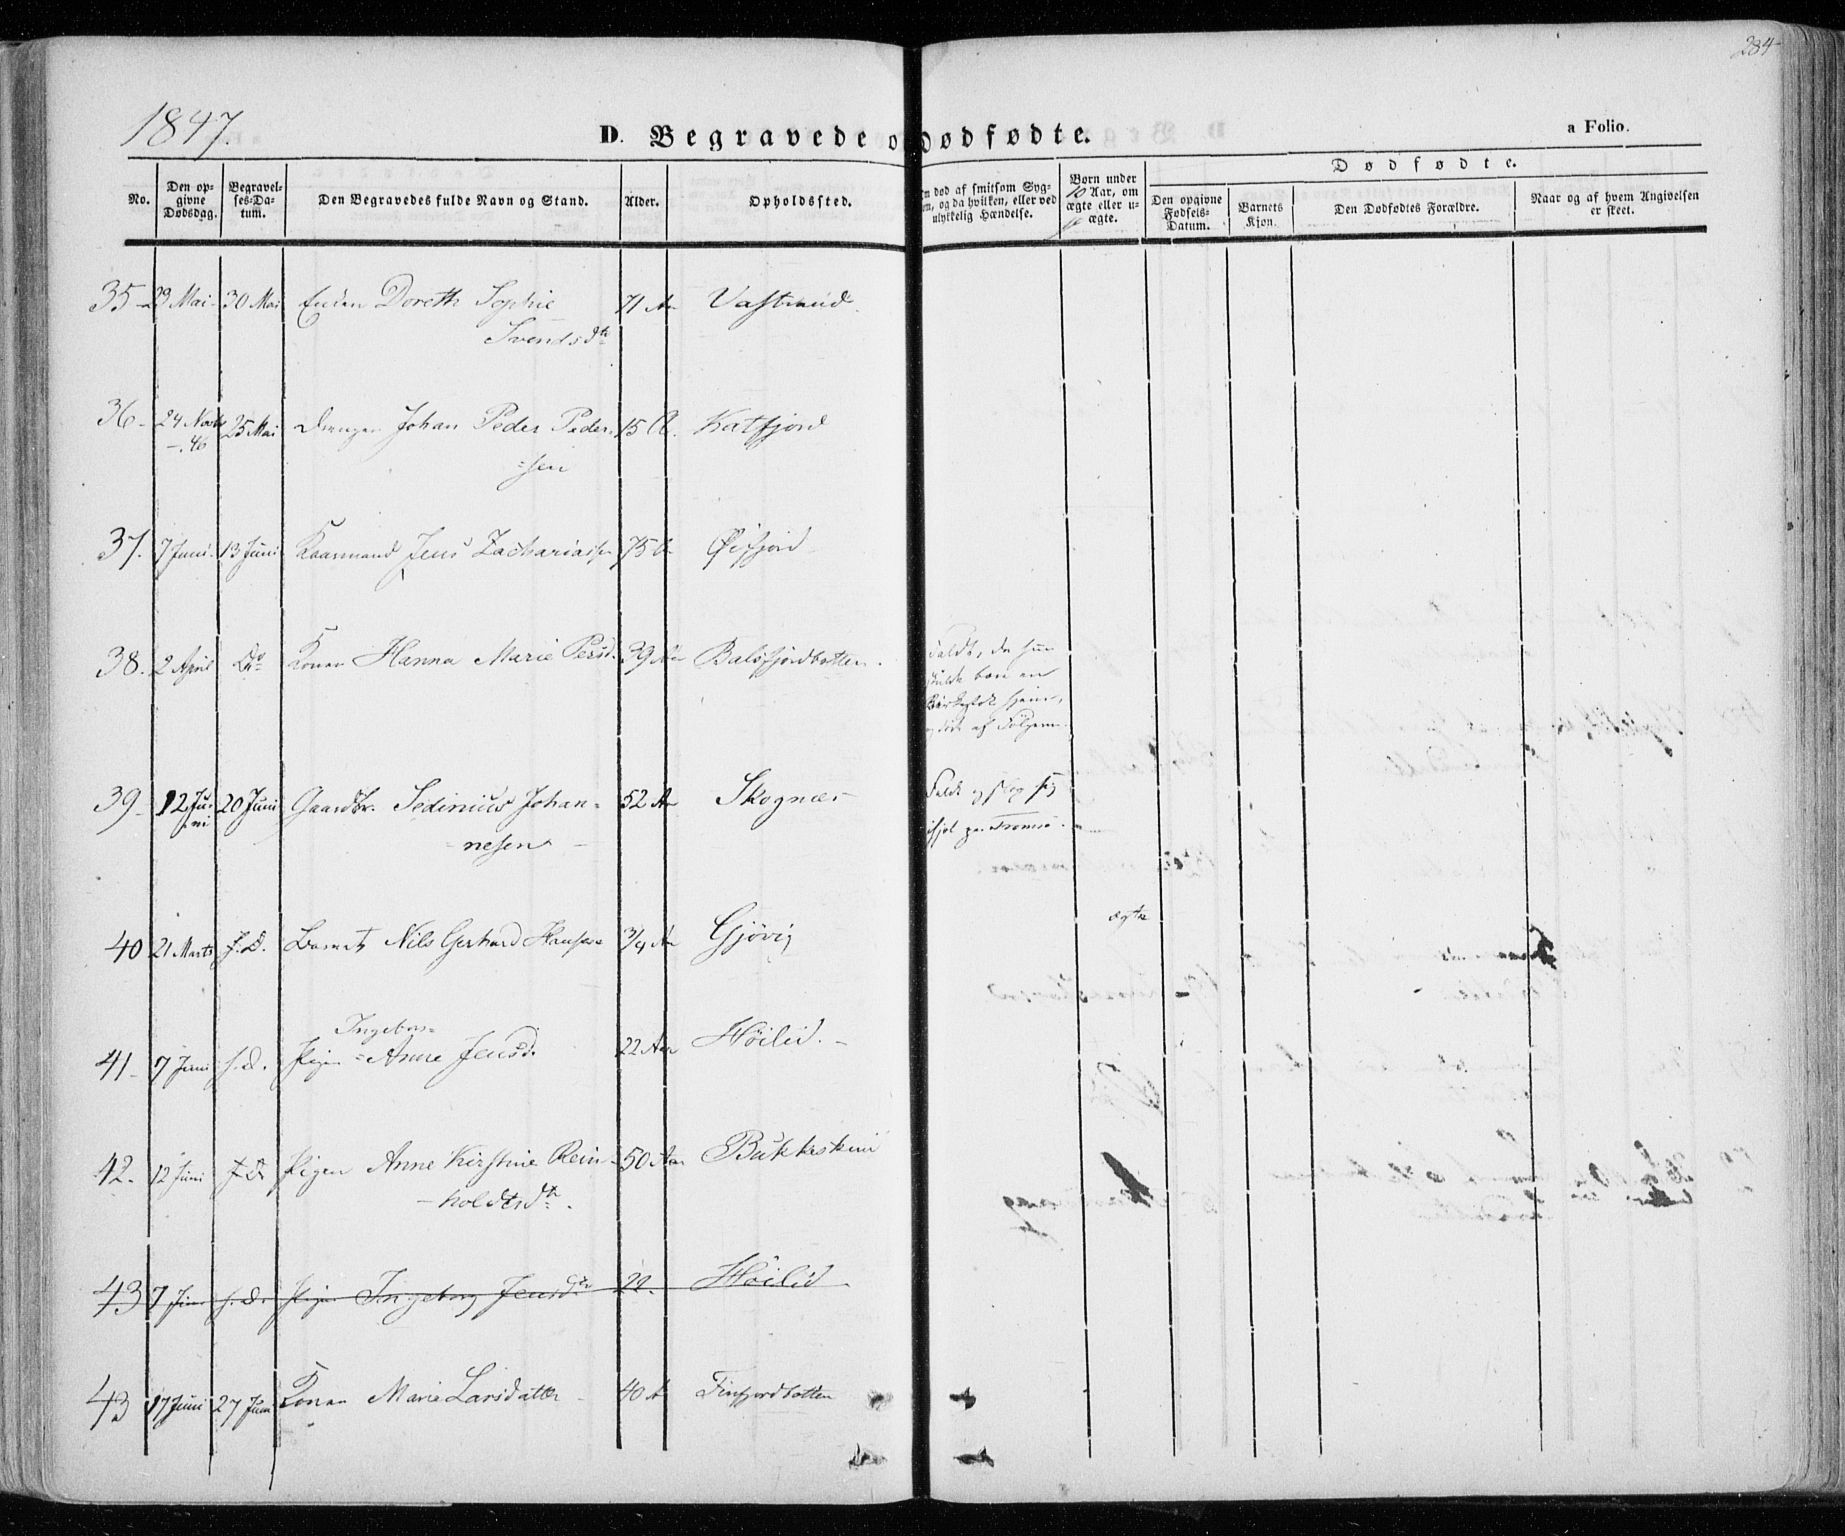 284
1847.
D. Begravede o
Dødfødte.
a Folio.
No.
Den op-
givne
Dødsdag.
Begravel-
ses-Da-
tum.
Den Begravedes fulde Navn og Stand.
Alder.
Opholdssted.
død af smitsom Syg-
om, og da hvilken, eller ved
ulykkelig Hændelse.
Børn under
10 Aar, om
ægte eller u-
ægte.
Dødfødte.
Den opgivne
Fødsels-
Datum.
Barnets
Kjøn.
Den Dødfødtes Forældre.
Naar og af hvem Angivelsen
er skeet.
35 29 Mai 30 Mai Enken Doreth Sophie 71 Aar
Svendsdtr
36 24 Novb 25 Mai Drengen Johan Peder Peder- 15 A. Katfjord
46
=sen
37. 7 Juni. 13 Juni Kaarmand Jens Zachariasen 75 A Øifjord
38. 2 April Do Konen Hanna Marie Persd. 39 Aar Balsfjordbotten.
Faldt, da hun
skulde bære en
hjem,
af Følgerne
39 12 Ju- 20 Juni Gaardbr. Sedinius Johan= 52 Aar Skognes
ni
nesen
Faldt og slog sig
ihjel paa Tromsø.
40 21 Marts s.D. Barnet Nils Gerhard Hansen 3/4 Aar Gjøvig ægte
Ingebor=
41 7 Juni s.D. Pigen =Anne Jensd. 22 Aar Høilid.
42. 12 Juni s.D. Pigen Anne Kirstine Rein- 50 Aar Bukkeskin
-holdtsdtr.
43 7 Juni s.D. Pigen Ingeborg Jensdtr 22. Høilid
43 17 Juni 27 Juni Konen Marie Larsdatter 40 A Finfjordbotten